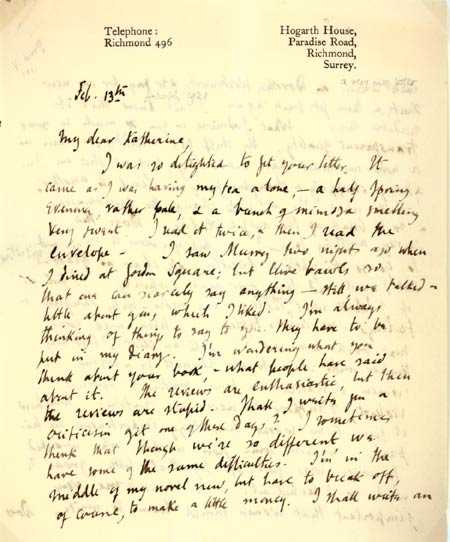 Telephone:
Richmond 496
Hogarth House,
Paradise Road,
Richmond,
Surrey.
Feb. 13th
My dear Katherine,
I was so delighted to get your letter. It
came as I was having my tea alone, – a half spring
evening, rather pale, & a bunch of mimosa smelling
very sweet. I read it twice, & then I read the
envelope – I saw Murry two nights ago when
I dined at Gordon Square; but Clive bawls so
that one can scarcely say anything – still we talked –
little about you, which I liked. I'm always
thinking of things to say to you. They have to be
put in my diary. I'm wondering what you
think about your book, – what people have said
about it. The reviews are enthusiastic, but then
the reviews are stupid. Shall I write you a
criticism of it one of these days? I sometimes
think that though we're so different we
have some of the same difficulties. I'm in the
middle of my novel now, but have to break off,
of course, to make a little money. I shall write an